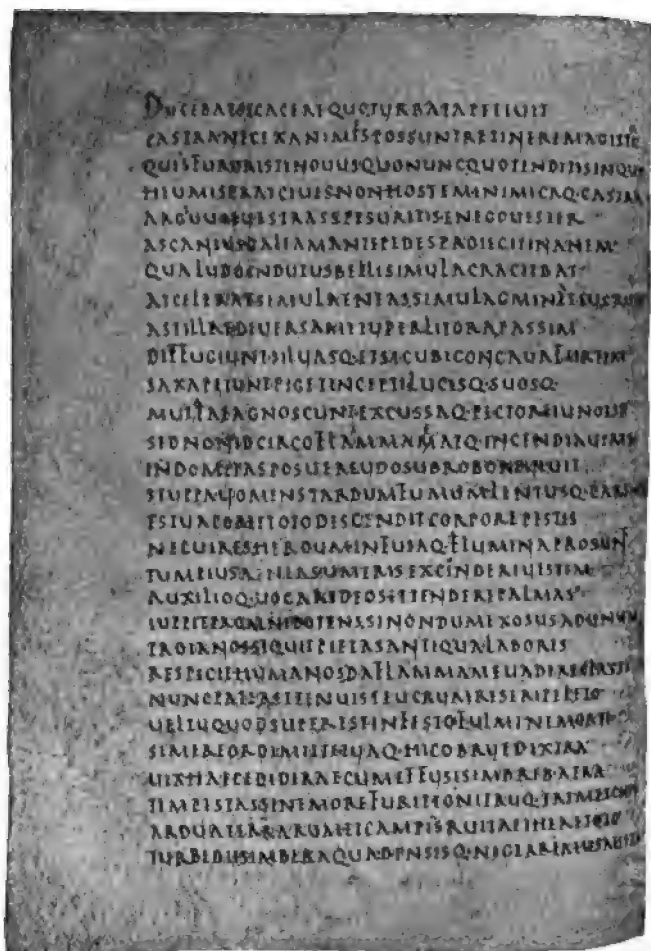 DUCEBATSICACEREQUOTURBATAPETIUIT
CASTRANECEXANIMESPOSSUNTRETINEREMAGISTRI
QUISFURORISTENOUUSQUONUNCQUOTENDITISINQUIT
HEUMISERAECIUESNONHOSTEMINIMICAQ·CASTRA
ARGIUUMUESTRASSPESURITISENEGOUESTER
ASCANIUSGALEAMANTEPEDESPROIECITINANEM
QUALUDOINDUTUSBELLISIMULACRACIEBAT
ACCELERATSIMULAENEASSIMULAGMINATEUCRUM
ASTILLAEDIUERSAMETUPERLITORAPASSIM
DIFFUGIUNTSILUASQ·ETSICUBICONCAUAFURTIM
SAXAPETUNTPIGETINCEPTILUCISQ·SUOSQ·
MUTATAEAGNOSCUNTEXCUSSAQ·PECTOREIUNOEST
SEDNONIDCIRCOFLAMMAMATQ·INCENDIAUIRES
INDOMITASPOSUEREUDOSUBROBOREUIUIT
STUPPAUOMENSTARDUMFUMUMLENTUSQ·CARINAS
ESTUAPORETTOTODESCENDITCORPOREPESTIS
NECUIRESHEROUMINFUSAQ·FLUMINAPROSUNT
TUMPIUSAENEASUMERISEXCINDEREUESTEM
AUXILIOQ·UOCAREDEOSETTENDEREPALMAS
IUPPITEROMNIPOTENSSINONDUMEXOSUSADUNUM
TROIANOSSIQUITPIETASANTIQUALABORIS
RESPICITHUMANOSDAFLAMMAMEUADERECLASSI
NUNCPATERETTENUISTEUCRUMRESERIPELETO
UELTUQUODSUPERESTINFESTOFULMINEMORTI
SIMEREORDEMITTETUAQ·HICOBRUEDEXTRA
UIXHAECEDIDERATCUMEFFUSISIMBRIB·ATRA
TEMPESTASSINEMOREFURITTONITRUQ·TREMESCUNT
ARDUATERRARUMETCAMPISRUITAETHERETOTO
TURBIDUSIMBERAQUADENSISQ·NIGERRIMUSAUSTRIS